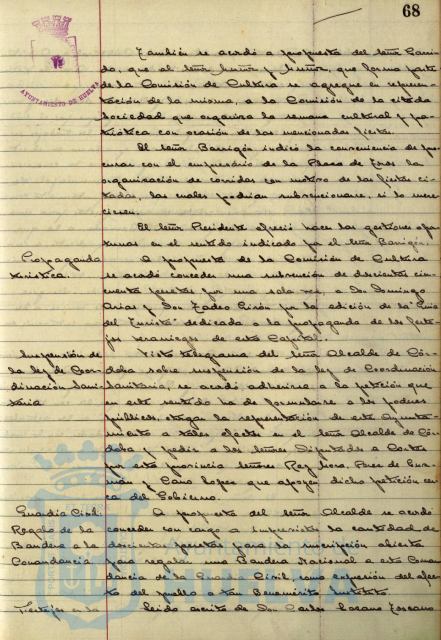 68
AYUNTAMIENTO DE HUELVA
También se acordó a propuesta del señor Garri-
do, que al señor Muñoz y Muñoz, que forma parte
de la Comisión de Cultura se agregue en represen-
tación de la misma, a la Comisión de la citada
Sociedad que organiza la semana cultural y pa-
triótica con ocasión de las mencionadas fiestas.
El señor Barrigón indicó la conveniencia de pro-
curar con el empresario de la Plaza de Toros la
organización de corridas con motivo de las fiestas ci-
tadas, las cuales podrían subvencionarse, si lo mere-
ciesen.
El señor Presidente ofreció hacer las gestiones opor-
tunas en el sentido indicado por el señor Barrigón.
Propaganda
turística.
A propuesta de la Comisión de Cultura
se acordó conceder una subvención de doscientas cin-
cuenta pesetas por una sola vez, a Don Domingo
Arias y Don Tadeo Girón por la edición de la "Guía
del Turista" dedicada a la propaganda de los feste-
jos veraniegos de esta Capital.
Suspensión de
la ley de Coor-
dinación Sani-
taria
Visto telegrama del señor Alcalde de Cór-
doba sobre suspensión de la ley de Coordinación
Sanitaria, se acordó adherirse a la petición que
en este sentido ha de formularse a los poderes
públicos, otorgar la representación de este Ayunta-
miento a tales efectos en el señor Alcalde de Cór-
doba y pedir a los señores Diputados a Cortes
por esta provincia señores Rey Mora, Pérez de Guz-
mán y Cano López que apoyen dicha petición cer-
ca del Gobierno.
Guardia Civil:
Regalo de la
Bandera a la
Comandancia
A propuesta del señor Alcalde se acordó
conceder con cargo a Imprevistos la cantidad de
doscientas pesetas para la suscripción abierta
para regalar una Bandera Nacional a esta Coman-
dancia de la Guardia Civil, como expresión del afec-
to del pueblo a tan Benemérito Instituto.
Festejos en la
Leído escrito de Don Carlos Lozano Lozano
Ayuntamiento